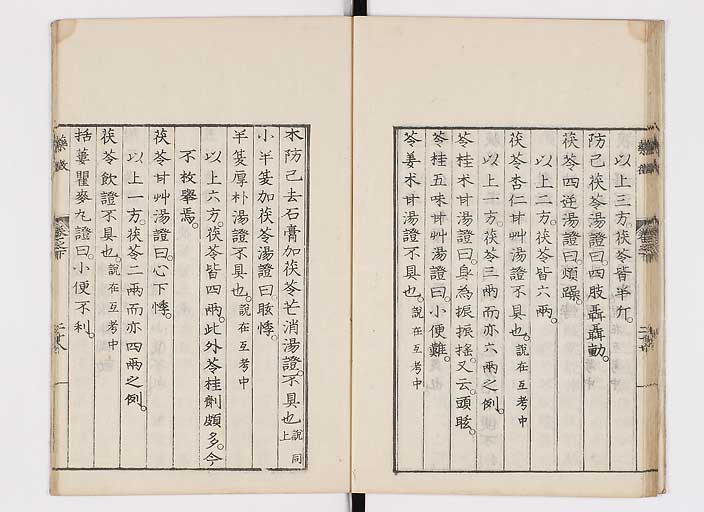 以上三方。茯苓皆半斤。
防己茯苓湯證曰。四肢聶聶動。
茯苓四逆湯證曰。煩躁。
以上二方。茯苓皆六兩。
茯苓杏仁甘艸湯證不具也。說在互考中
以上一方。茯苓三兩。而亦六兩之例。
苓桂朮甘湯證曰。身為振振搖。又云。頭眩。
苓桂五味甘艸湯證曰。小便難。
苓姜朮甘湯證不具也。說在互考中
木防己去石膏加茯苓芒消湯證。不具也。說同上
小半夏加茯苓湯證曰。眩悸。
半夏厚朴湯證不具也。說在互考中
以上六方。茯苓皆四兩。此外苓桂劑頗多。今
不枚舉焉。
茯苓甘艸湯證曰。心下悸。
以上一方。茯苓二兩。而亦四兩之例。
茯苓飲證不具也。說在互考中
括蔞瞿麥丸證曰。小便不利。
藥徵